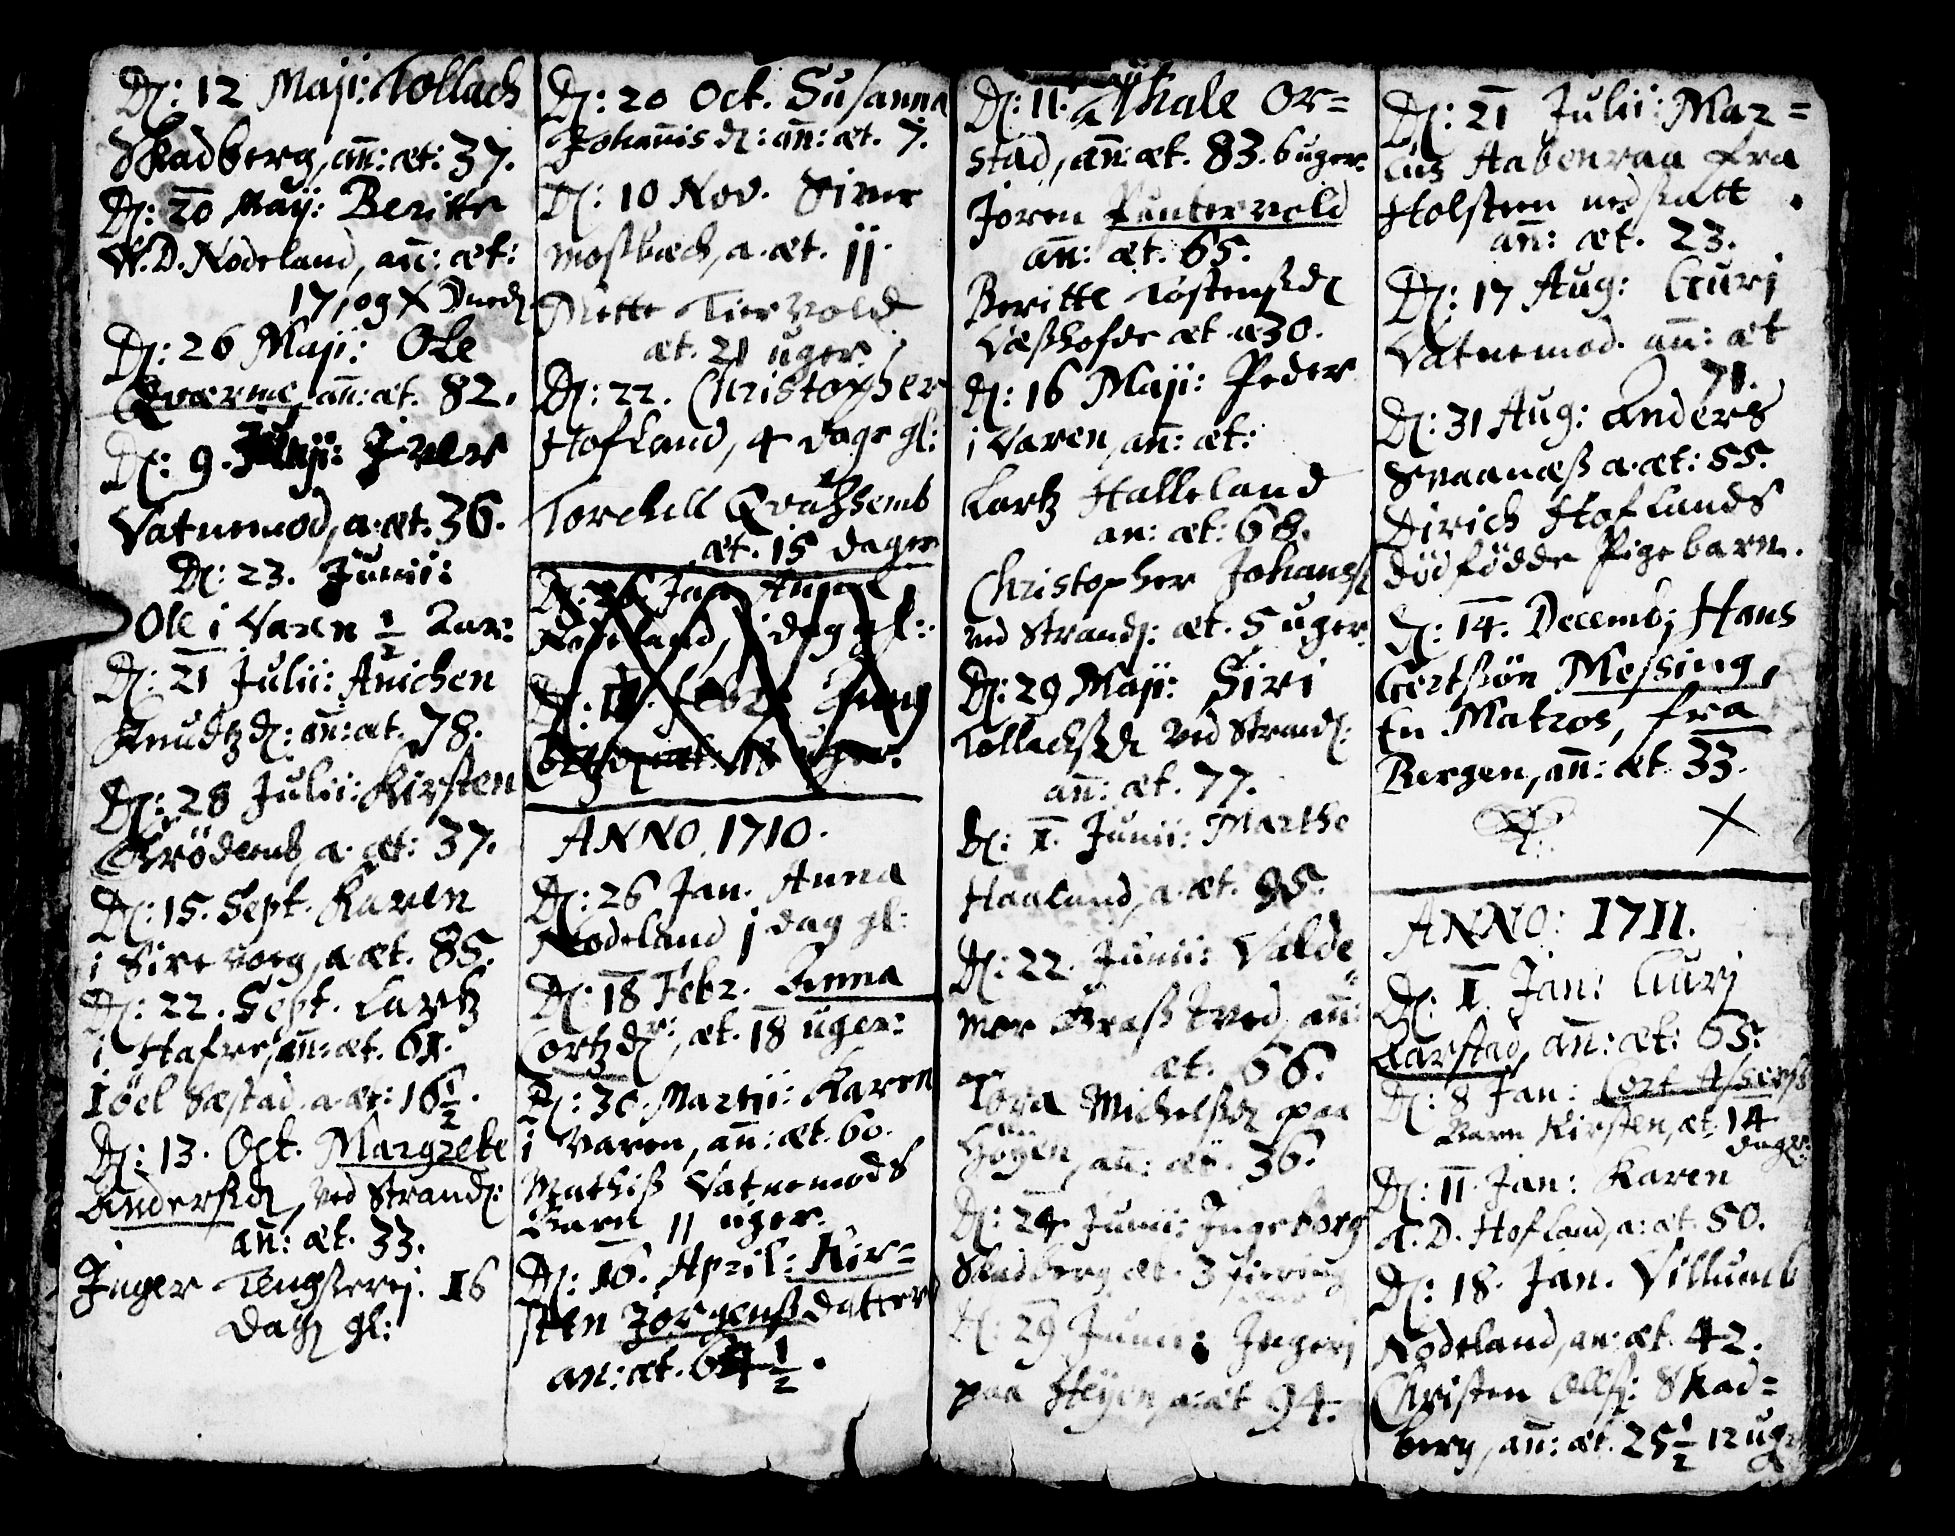 D: 12 Maji: Tollach
Skadberg, añ: æt: 37.
D: 20 Maij: Beritte
A.D. Nodeland, añ: æt:
17, og
D: 26 Maji: Ole
Qværme, añ: æt. 82.
D: 9. Iver
Vatnemod, a: æt. 36.
D: 23. Junii:
Ole i Varen ½ Aar:
D: 21 Julii: Anichen
Knudtzd: añ: æt. 78.
D: 28 Julii: Kirsten
a. æt: 37.
D: 15. Sept. Karen
i Sirevoeg, a. æt. 85.
D: 22. Sept. Lartz
i Hafre, añ: æt. 61.
Iöel Sæstad. a. æt: 16½.
D: 13. Oct. Margrete
Andersd, ved Strand:
añ: æt. 33.
Inger Tengsserej. 16
dag gl:
D: 20 Oct. Susanna
Johañis d: añ: æt. 7.
D: 10 Nov. Siver
Mosbæch, a. æt. jj.
Mette Tiervold
æt. 21 uger.
D: 22. Christopher
Hofland, 4 dage gl:
Torchell Qvassemb
æt. 15 dager
D: 26 Jan Anna
Nodeland, j dag gl:
D: 18. Febr. Anna
æt: 18 uger.
ANNO 1710.
D: 26 Jan. Anna
Nodeland j dag gl:
D: 18 Febr. Anna
Cortzdr:, æt. 18 uger:
D: 30. Martii: Karen
i Varen, añ: æt. 60.
Mathiß Vatnemods
Barn 11 uger.
D: 16. April: Kir=
sten Jörgenßdatter
an: æt. 64½.
D: 11. Ashale Or=
stad, añ: æt. 83. 6 uger.
Jören Puntervold
añ: æt. 65.
Beritte Tostensd
æt. a 30.
D: 16 Maji: Peder
i Varen, añ: æt:
Lartz Halleland
an: æt: 68.
Christopher Johanss
ved Strand: æt. 5 uger.
D: 29 Maji: Siri
Tollachsd ved Strand:
añ: æt. 77.
D: 1. Junii: Marthe
Haaland, a. æt. 85.
D: 22. Junii: Valde=
mor Graßtved, añ:
æt. 66.
Tora Michelsd paa
Höyen, añ: æt. 36.
D: 24 Junii: Ingeborg
Skadberg æt. 3
D: 29 Junii: Ingerj
paa Höyen, a: æt 94.
D: 21 Julii: Mar=
cus Aabenraa fra
Holsteen nedsatt.
añ: æt. 23.
D: 17 Aug: Gurj
Vatnemod. añ: æt
71.
D: 31 Aug: Anders
Svaanæß a. æt: 55.
Dirich Hoflands
dödfödde Pigebarn.
D: 14. Decemb; Hans
Gertßön Messing,
En Matros, fra
Bergen, añ: æt. 33.
ANNO: 1711.
D: 1 Jan: Gurj
Aarstad, añ: æt: 65.
D: 8 Jan: Cort
Barn Kirsten, æt. 14
dager.
D: 11 Jan: Karen
A.D. Hofland, a: æt. 50.
D: 18. Jan. Villumb
Nodeland, an: æt. 42.
Christen Olls: Skad=
berg, añ: æt. 25½ 12 ug: